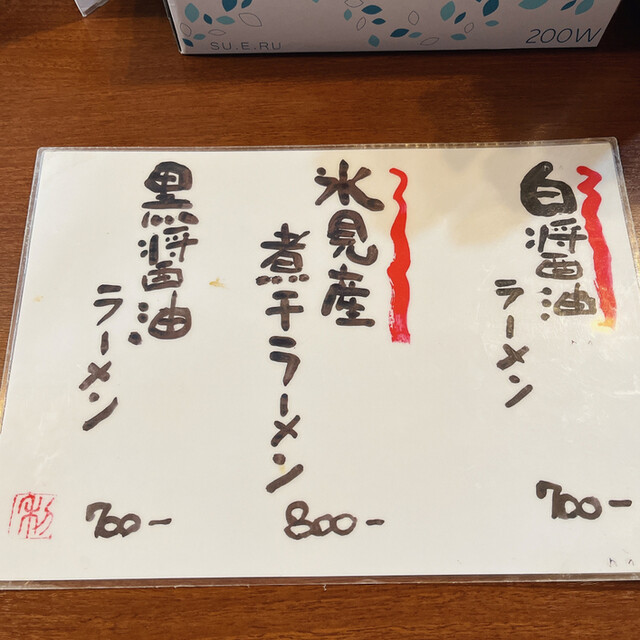 SU.E.RU
200W
白醤油
ラーメン
700-
氷見産
煮干ラーメン
800-
黒醤油
ラーメン
700-
彩